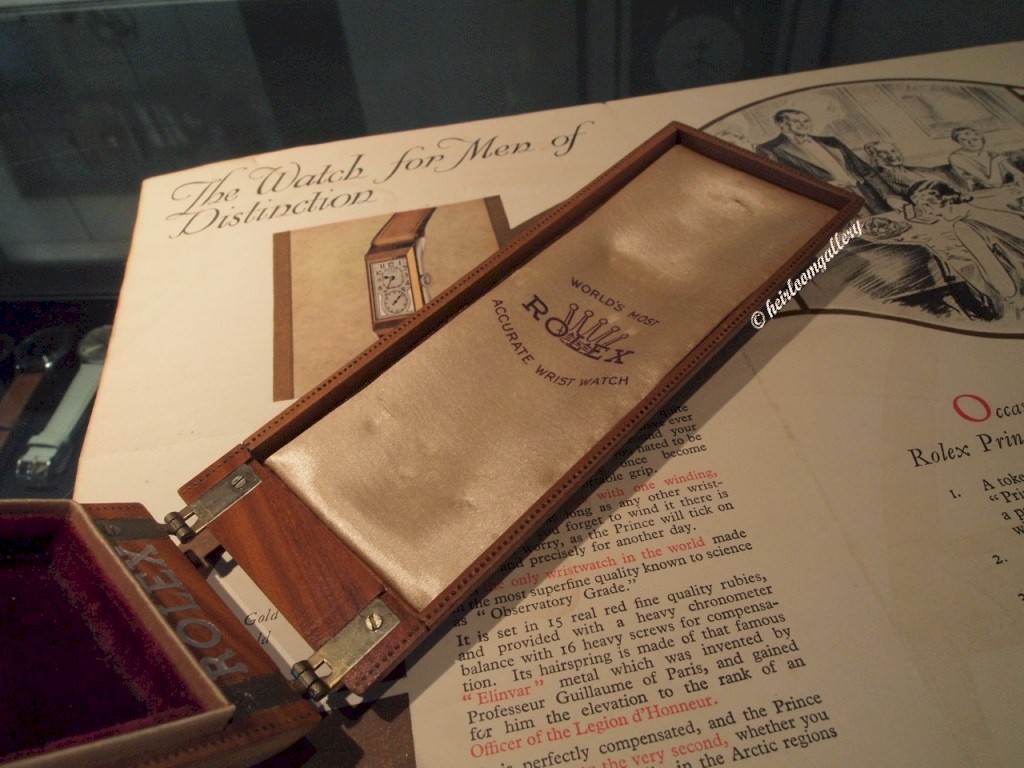 The Watch for Men of
Distinction
WORLD'S MOST
ROLEX
ACCURATE WRIST WATCH
© heirloomgallery
quite
ever
and your
hated to be
once become
grip.
with one winding,
long as any other wrist-
forget to wind it there is
worry, as the Prince will tick on
and precisely for another day.
only wristwatch in the world made
the most superfine quality known to science
as "Observatory Grade."
It is set in 15 real red fine quality rubies,
and provided with a heavy chronometer
balance with 16 heavy screws for compensa-
tion. Its hairspring is made of that famous
"Elinvar" metal which was invented by
Professor Guillaume of Paris, and gained
for him the elevation to the rank of an
Officer of the Legion d'Honneur.
is perfectly compensated, and the Prince
to the very second, whether you
in the Arctic regions
Occa
Rolex Prin
1. A toke
"Pri
a p
w
2.
ROLEX
Gold
ld